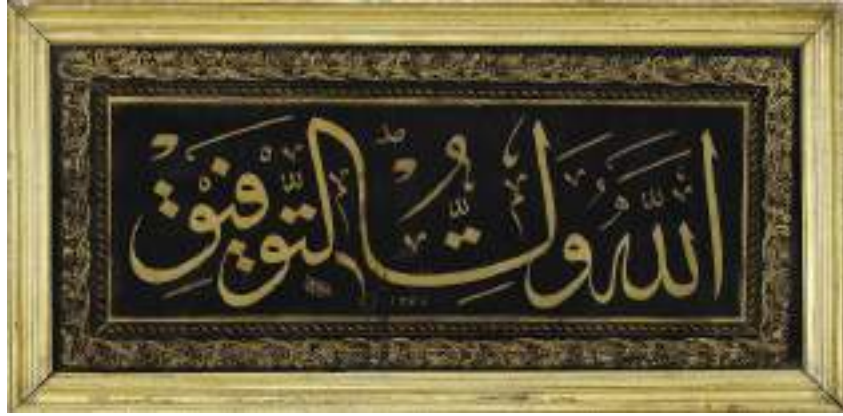 اللهُ وَلِيُّ التَّوْفِيقْ